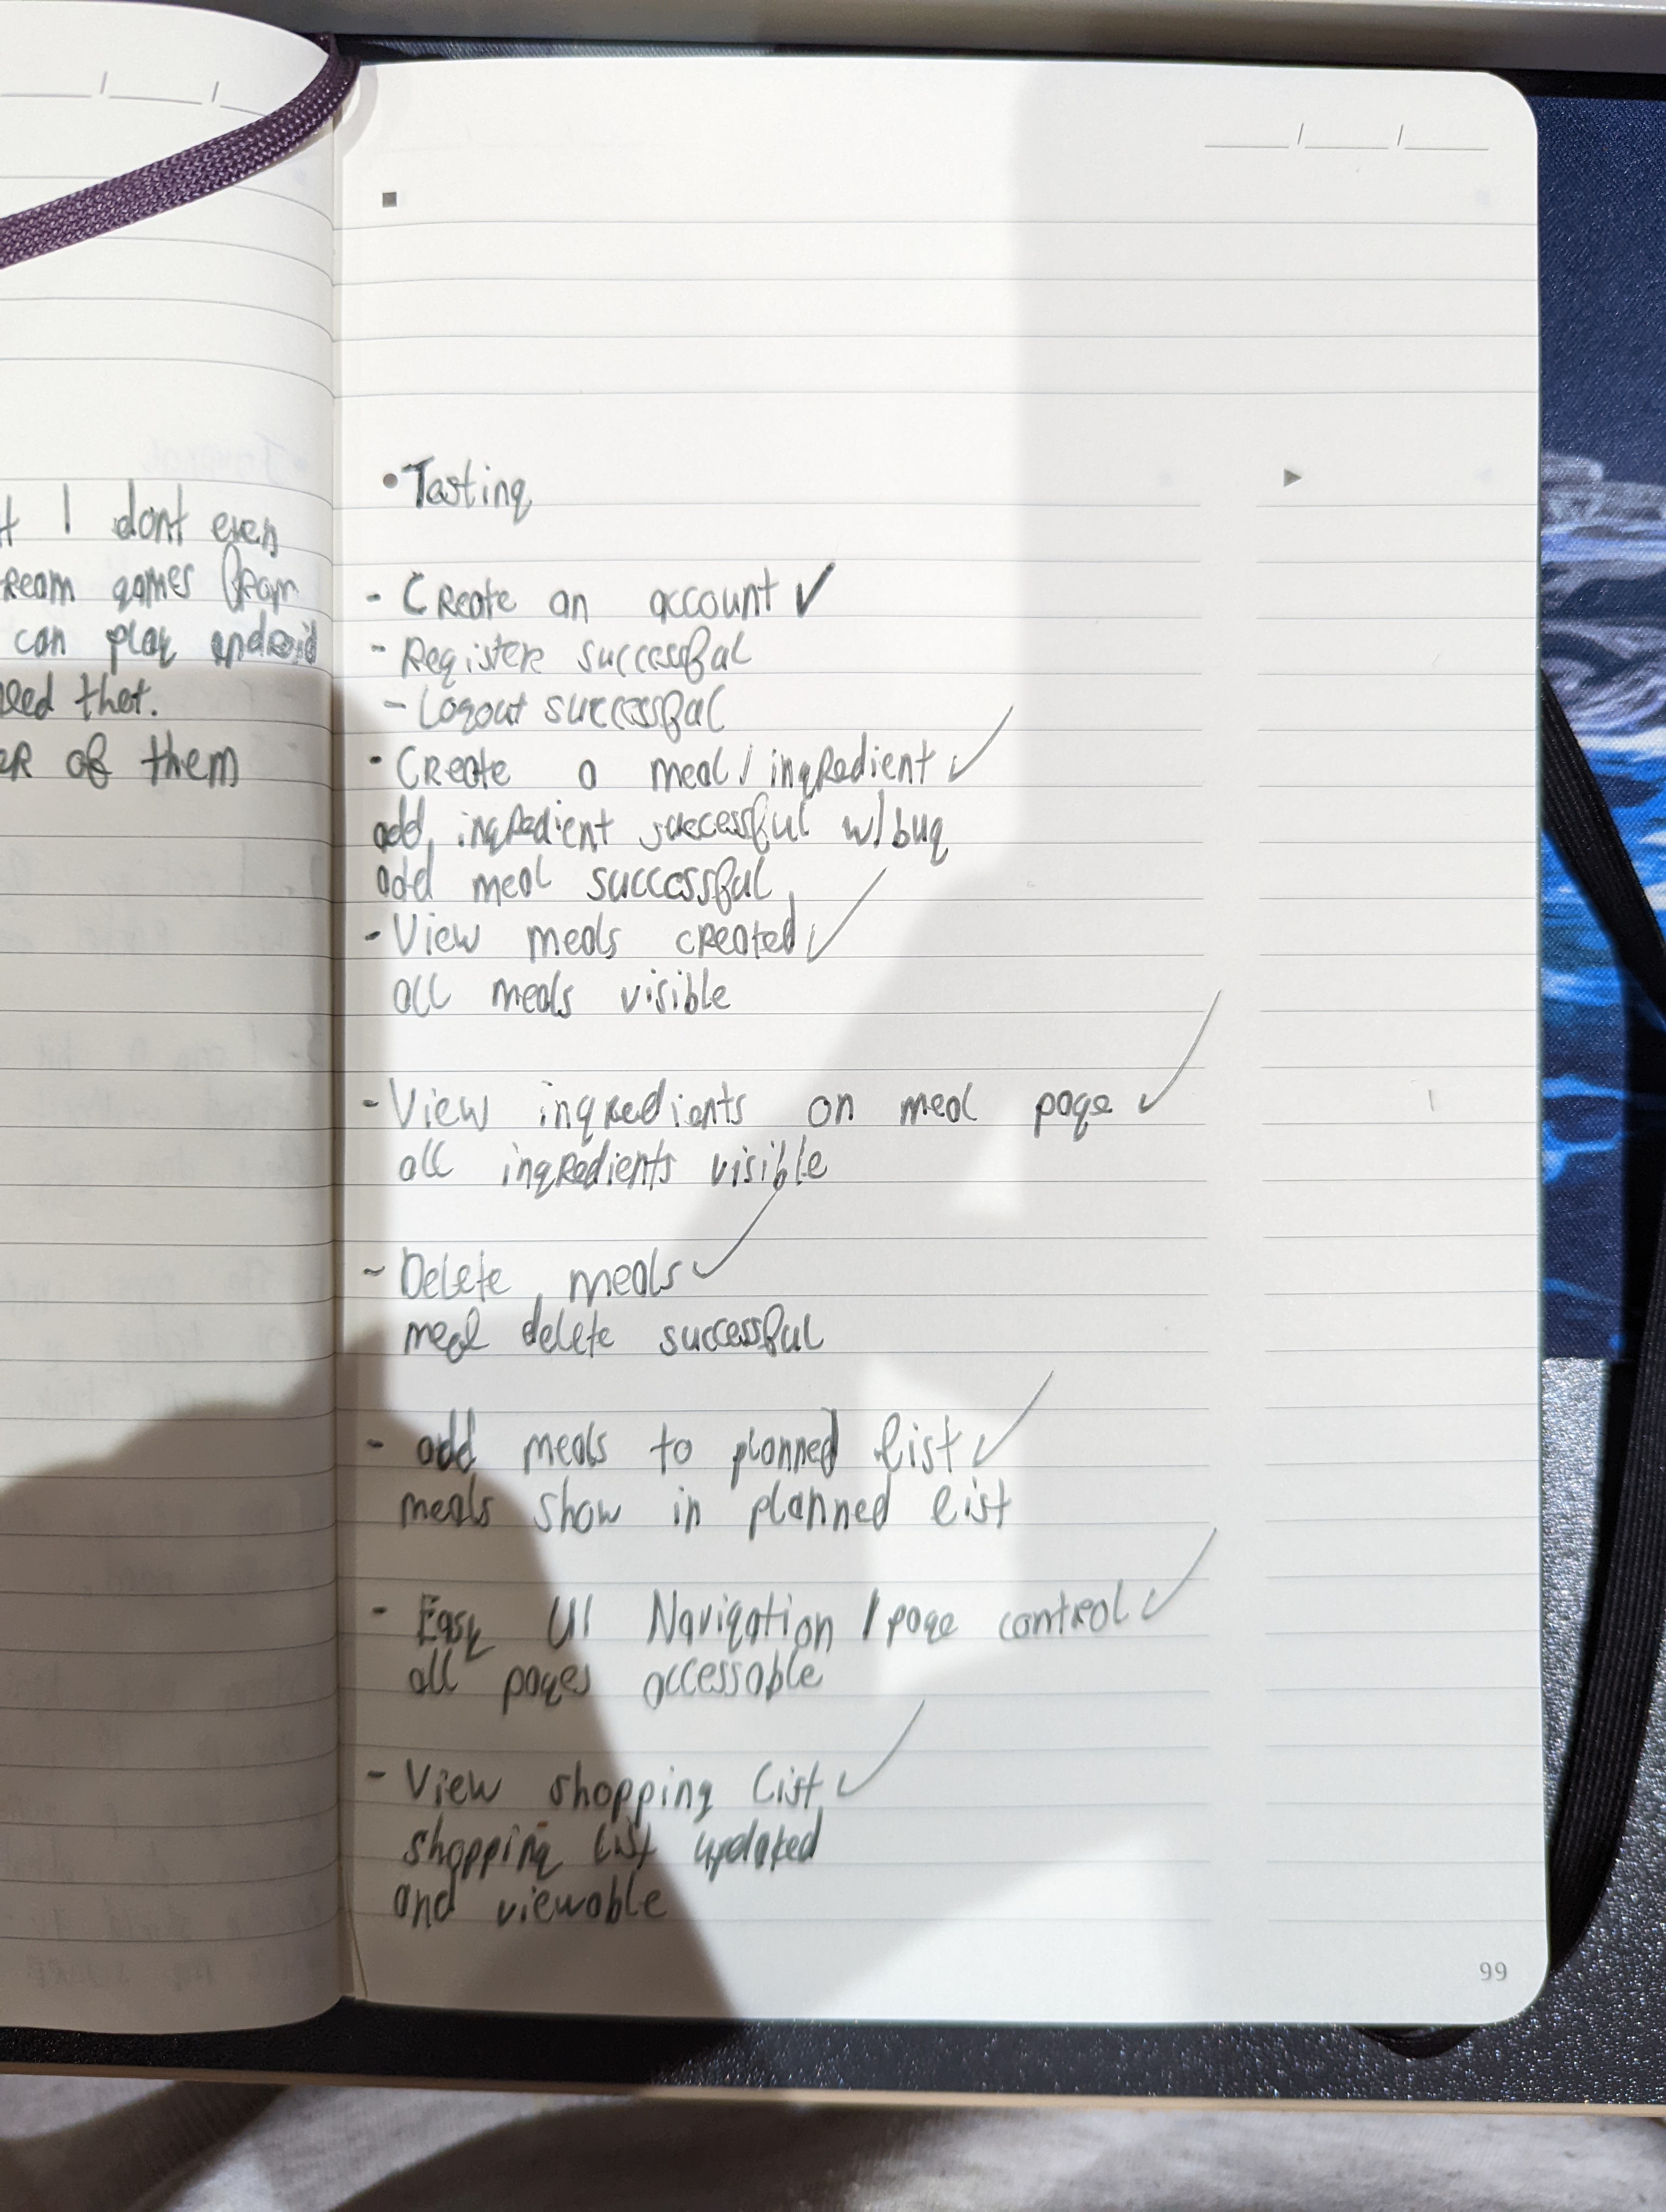 I dont even
games
can play android
that.
of them
• Testing
- Create an account ✓
- Register successful
- Logout successful
- Create a meal / ingredient ✓
add ingredient successful w/bug
add meal successful
- View meals created ✓
all meals visible
- View ingredients on meal page ✓
all ingredients visible
- Delete meals ✓
meal delete successful
- add meals to planned list ✓
meals show in planned list
- Easy UI Navigation / page control ✓
all pages accessable
- View shopping list ✓
shopping list updated
and viewable
99